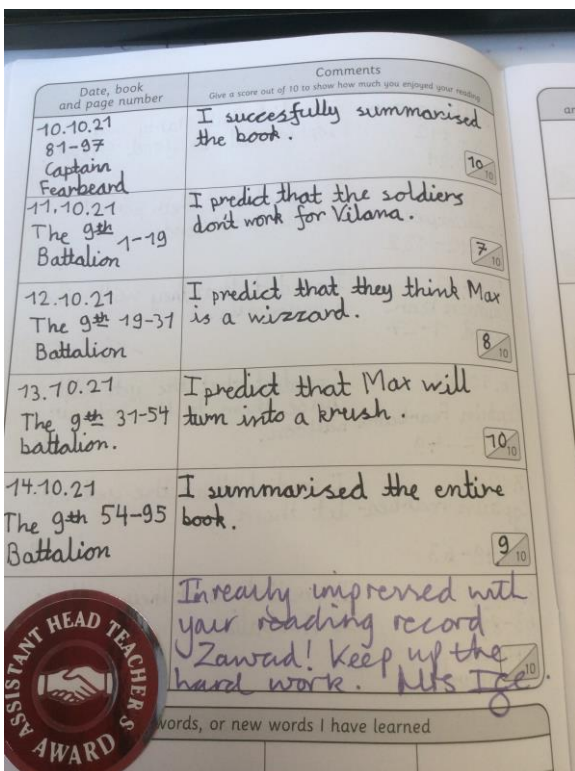 Date, book
and page number
Comments
Give a score out of 10 to show how much you enjoyed your reading
10.10.21
81-97
Captain
Fearbeard
I succesfully summarised
the book.
10/10
11.10.21
The 9th 1-19
Battalion
I predict that the soldiers
don't work for Vilana.
7/10
12.10.21
The 9th 19-31
Battalion
I predict that they think Max
is a wizzard.
8/10
13.10.21
The 9th 31-54
battalion.
I predict that Max will
turn into a krush.
10/10
14.10.21
The 9th 54-95
Battalion
I summarised the entire
book.
9/10
I'm really impressed with
your reading record
Zawad! Keep up the
hard work. Mrs Ige.
10
ASSISTANT HEAD TEACHERS
AWARD
words, or new words I have learned